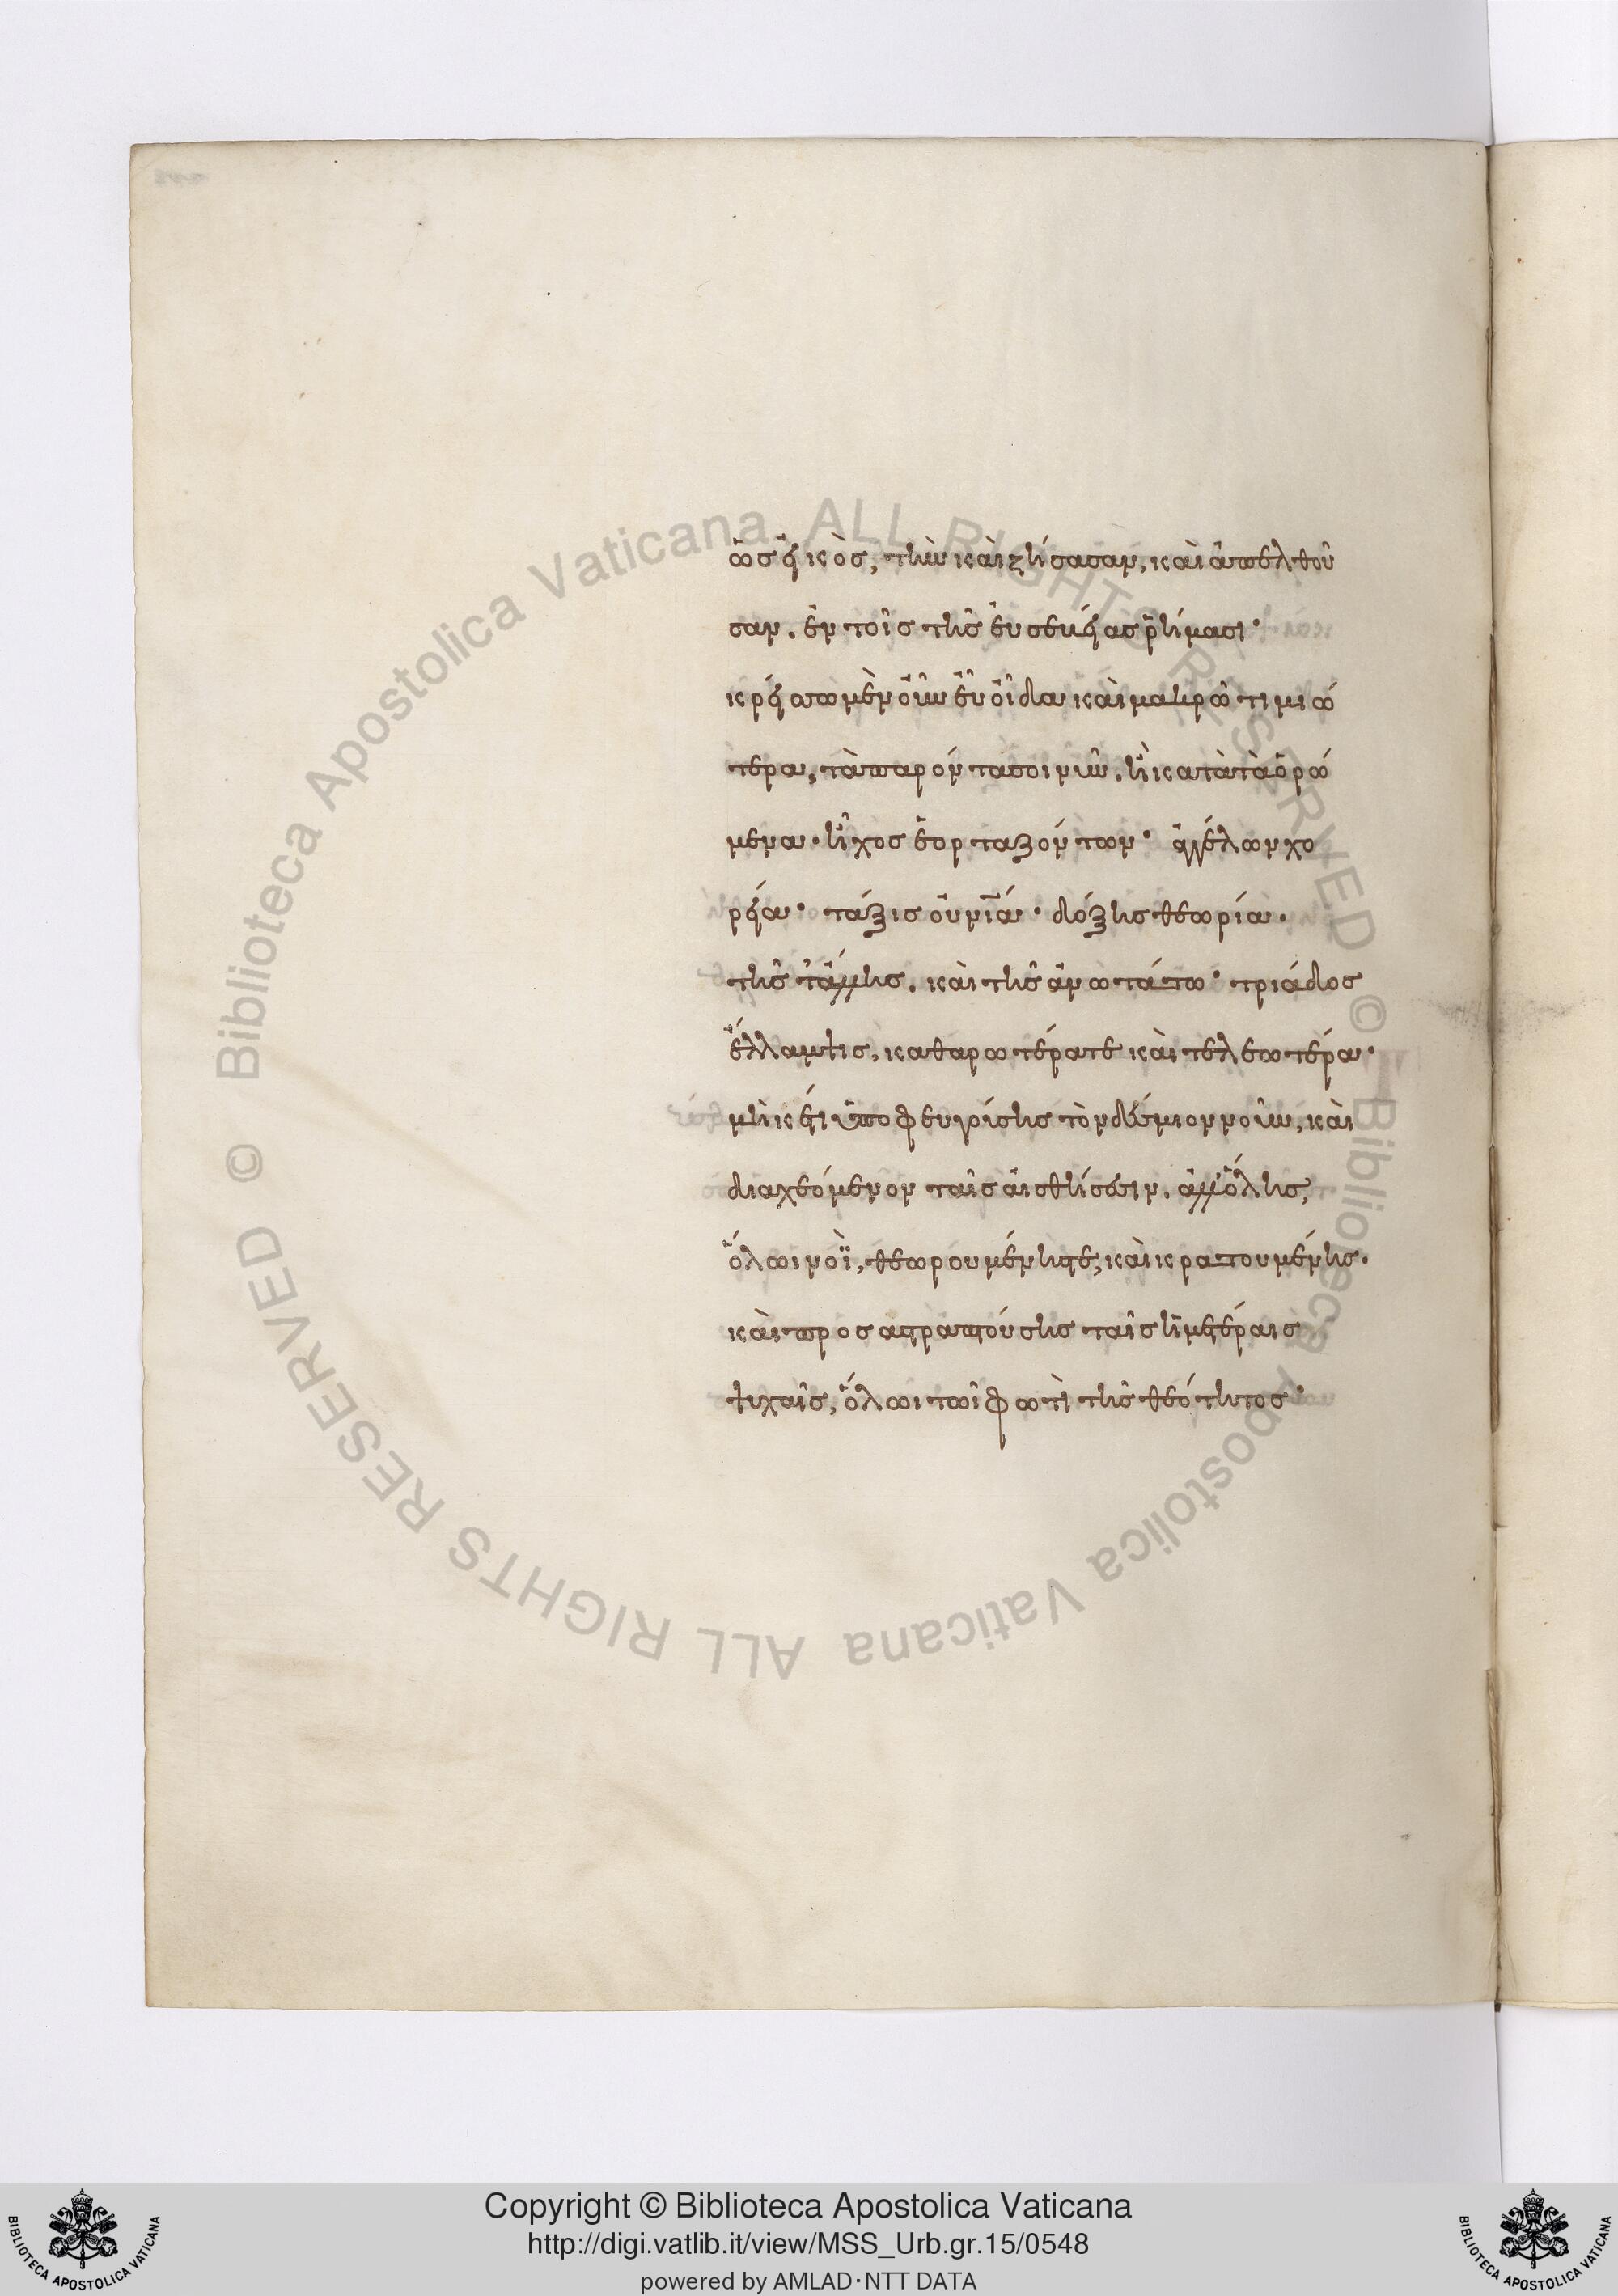 ὡς εἰκὸς, τὴν καὶ ζήσασαν, καὶ ἀπελθοῦ
σαν. ἐν τοῖς τῆς ἐυσεβείας ῥήμασι·
κρείττω μὲν οὖν εὖ οἶδα καὶ μακρῶ τιμιώ
τερα, τὰ παρόντα σοι νῦν. ἢ κατὰ τὰ ὁρώ
μενα· ἦχος ἑορταζόντων· ἀγγέλων χο
ρεία· τάξις οὐνία· δόξης θεωρία.
τῆς τἄλλης. καὶ τῆς ἀνωτάτω· τριάδος
ἔλλαμψις, καθαρωτέρα τε καὶ τελεωτέρα·
μὴ κέτι ὑποφευγούσης τὸν δέσμιον νοῦν, καὶ
διαχεόμενον ταῖς αἰσθήσεσιν. ἀλλ' ὅλης,
ὅλωι νοῒ, θεωρουμένης τε, καὶ κρατουμένης.
καὶ προσαστραπτούσης ταῖς ἡμετέραις
ψυχαῖς, ὅλωι τῶι φωτὶ τῆς θεότητος·
Copyright © Biblioteca Apostolica Vaticana
http://digi.vatlib.it/view/MSS_Urb.gr.15/0548
powered by AMLAD·NTT DATA
BIBLIOTECA APOSTOLICA VATICANA
BIBLIOTECA APOSTOLICA VATICANA
© Biblioteca Apostolica Vaticana ALL RIGHTS RESERVED © Biblioteca Apostolica Vaticana ALL RIGHTS RESERVED